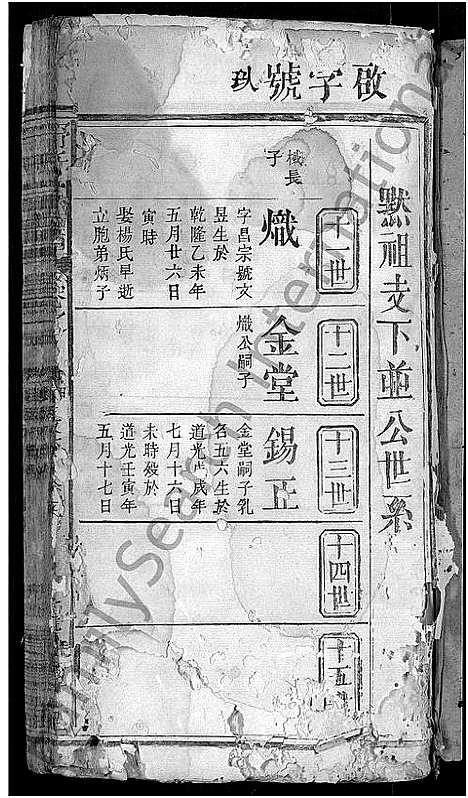 啟字號
玖
默祖支下並公世系
十一世
十二世
十三世
十四世
十五
械長
子
熾
字昌宗號文
昱生於
乾隆乙未年
五月廿六日
寅時
娶楊氏早逝
立胞弟炳子
金堂
熾公嗣子
錫正
金堂嗣子乳
名五六生於
道光戊戌年
七月十六日
未時歿於
道光壬寅年
五月十七日
FamilySearch International